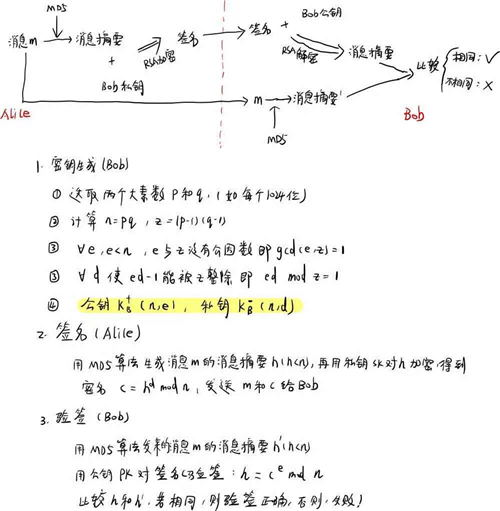 MD5
Bob公钥
消息m → 消息摘要 + ⇒ 签名 → 签名 +
RSA加密
RSA解密
消息摘要
Bob私钥
比较 { 相同:√
不相同:×
m → 消息摘要'
Alice
Bob
MD5
1. 密钥生成(Bob)
① 选取两个大素数P和q,(如每个1024位)
② 计算n=pq,z=(p-1)(q-1)
③ ∀e,e<n,e与z没有公因数即gcd(e,z)=1
③ ∀d使ed-1能被z整除即ed mod z=1
④ 公钥K_B^+(n,e),私钥K_B^-(n,d)
2. 签名(Alice)
用MD5算法生成消息m的消息摘要h(h<n),再用私钥SK对h加密,得到
c=h^d mod n,发送m和c给Bob
3. 验签(Bob)
用MD5算法 消息m的消息摘要h'(h<n)
用公钥PK对签名c 验签:h=c^e mod n
比较h和h',若相同,则验签正确,否则,失败!